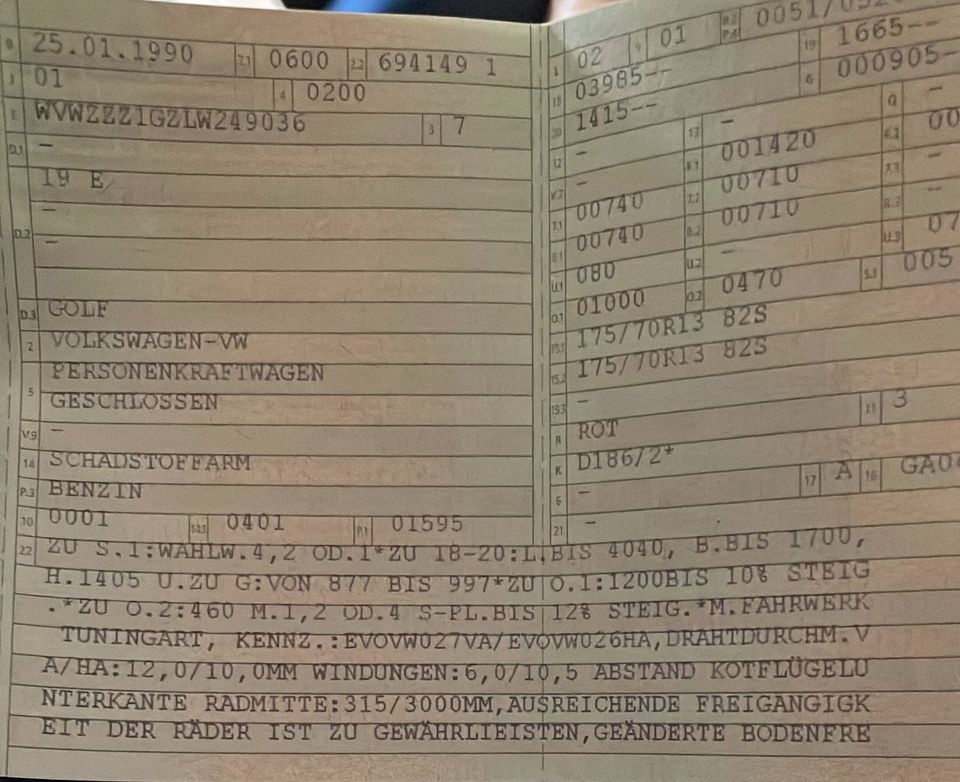 B 25.01.1990 2.1 0600 2.2 694149 1
J 01 4 0200
E WVWZZZ1GZLW249036 3 7
D.1 -
19 E
D.2 -
-
D.3 GOLF
2 VOLKSWAGEN-VW
5 PERSONENKRAFTWAGEN
GESCHLOSSEN
V.9 -
14 SCHADSTOFFARM
P.3 BENZIN
10 0001 14.1 0401 P.1 01595
L 02 9 01 P.2 P.4 0051/
18 03985-- 19 1665--
20 1415-- G 000905-
12 - 13 - Q -
V.7 - F.1 001420 F.2 00
7.1 00740 7.2 00710 7.3 -
8.1 00740 8.2 00710 8.3 -
U.1 080 U.2 - U.3 07
O.1 01000 O.2 0470 S.1 005
15.1 175/70R13 82S
15.2 175/70R13 82S
15.3 -
R ROT 11 3
K D186/2*
6 - 17 A 16 GA0
21 -
22 ZU S.1:WAHLW.4,2 OD.1*ZU 18-20:L.BIS 4040, B.BIS 1700,
H.1405 U.ZU G:VON 877 BIS 997*ZU O.1:1200BIS 10% STEIG
.*ZU O.2:460 M.1,2 OD.4 S-PL.BIS 12% STEIG.*M.FAHRWERK
TUNINGART, KENNZ.:EVOVW027VA/EVOVW026HA,DRAHTDURCHM.V
A/HA:12,0/10,0MM WINDUNGEN:6,0/10,5 ABSTAND KOTFLÜGELU
NTERKANTE RADMITTE:315/3000MM,AUSREICHENDE FREIGANGIGK
EIT DER RÄDER IST ZU GEWÄHRLIEISTEN,GEÄNDERTE BODENFRE